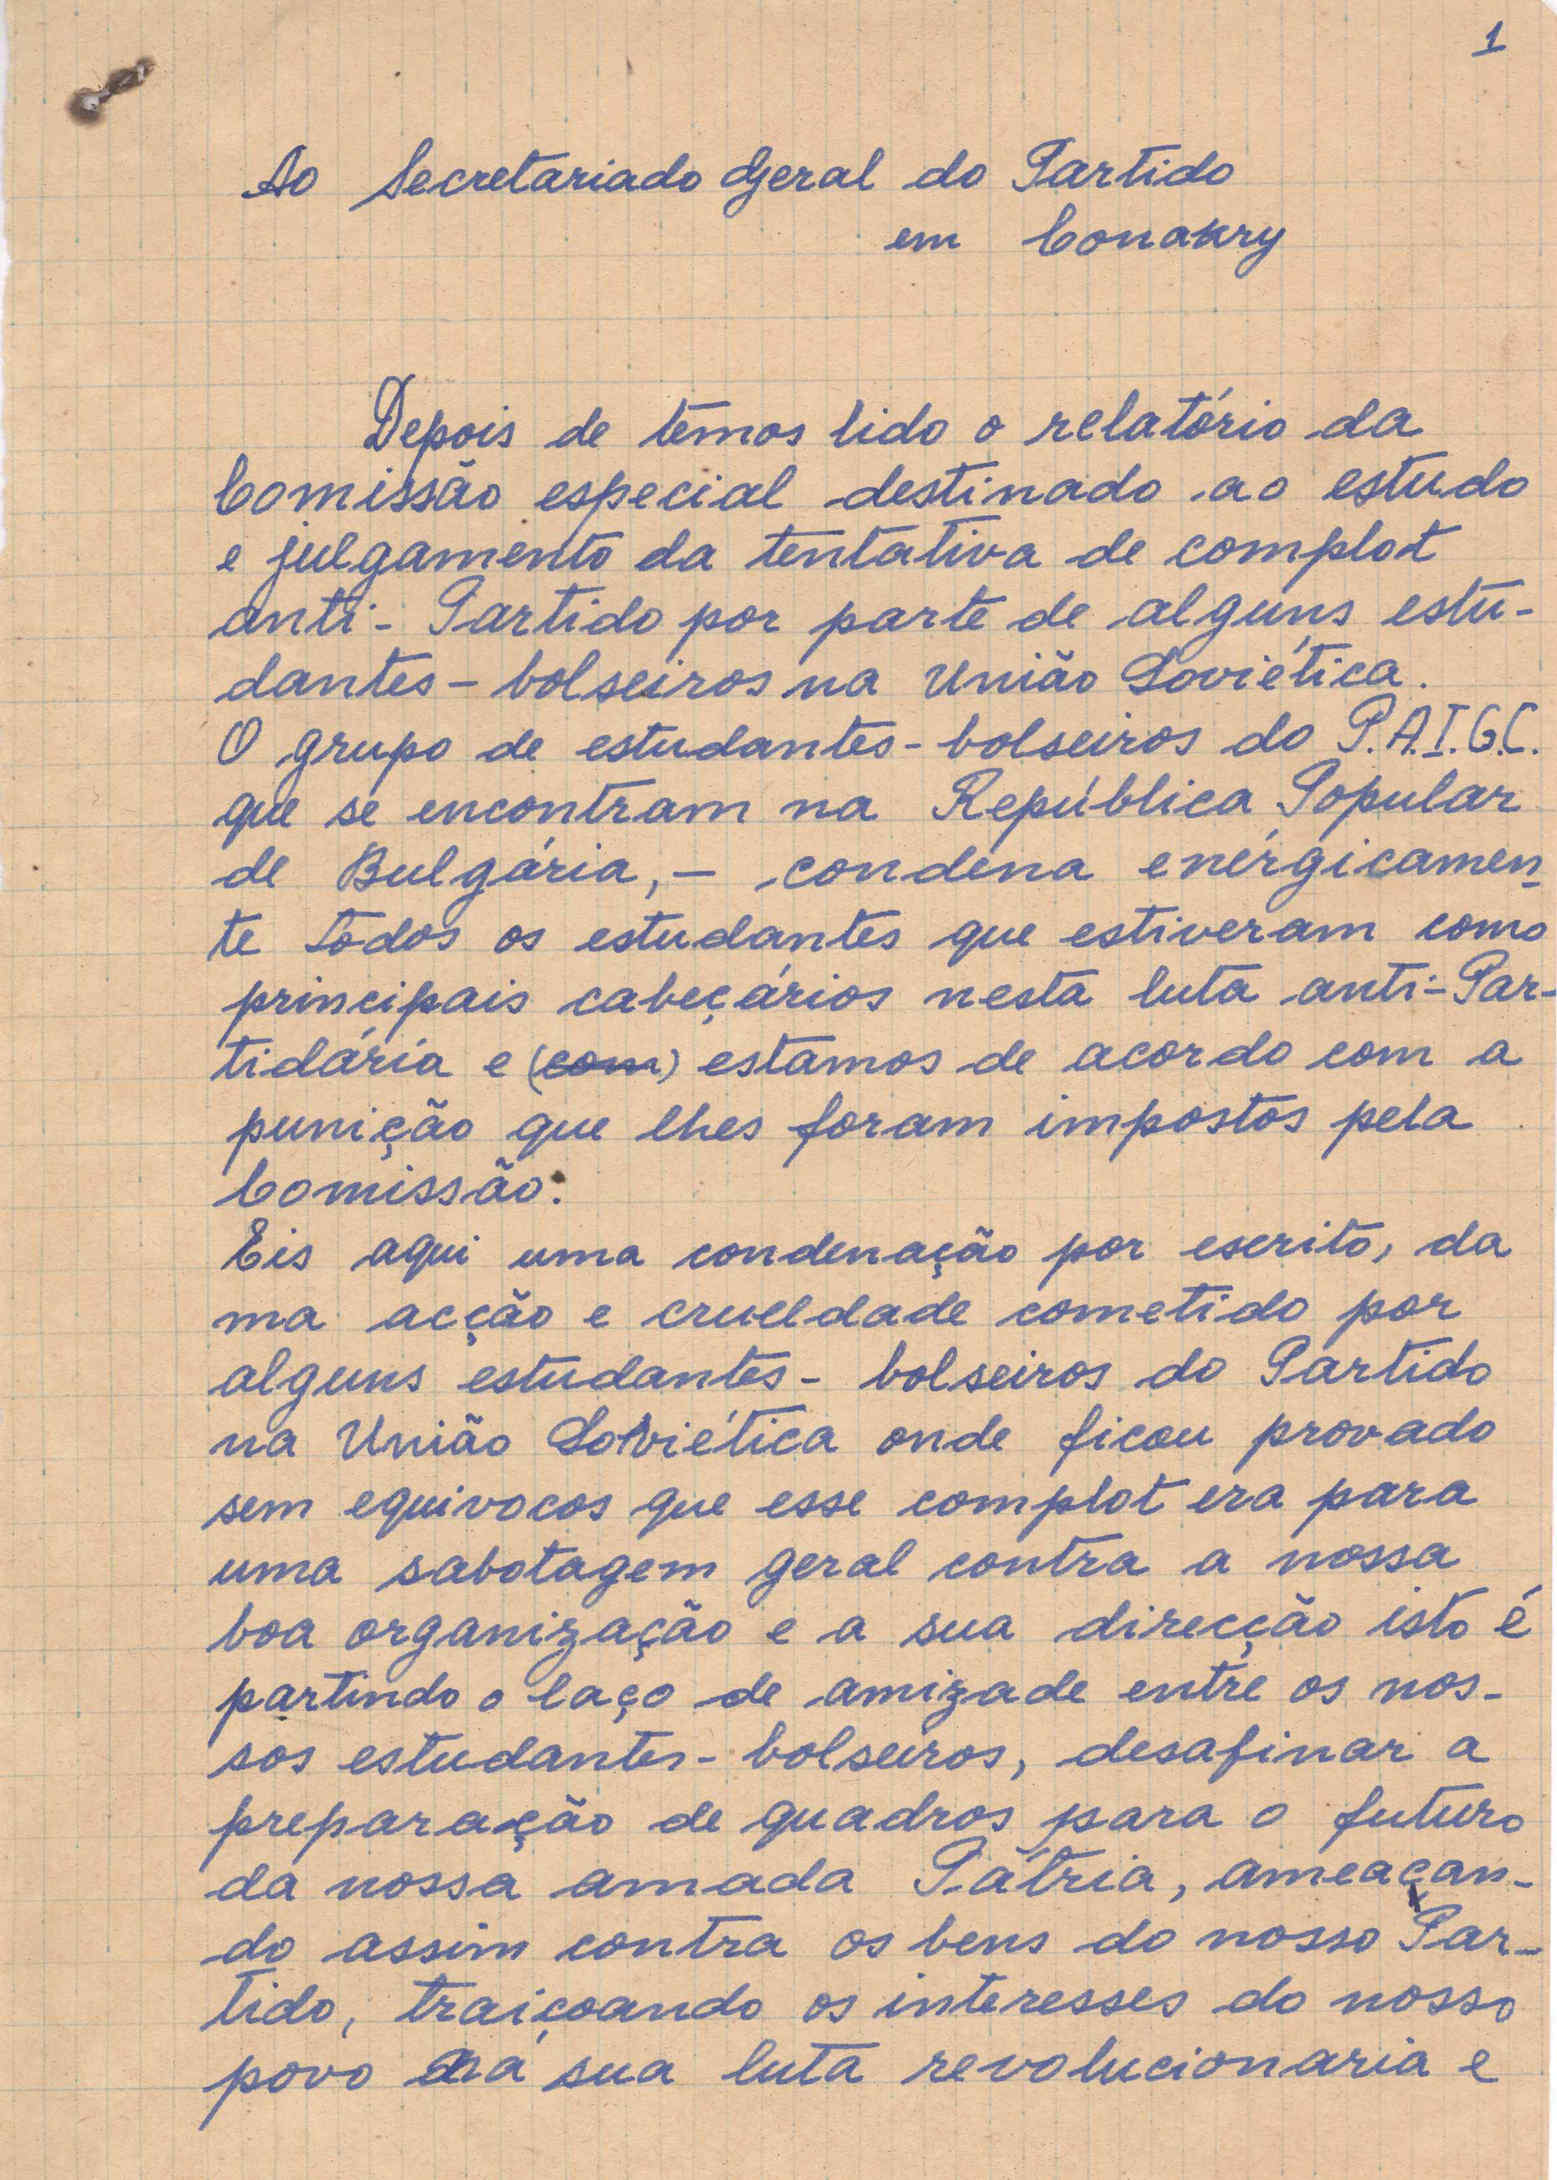 1
Ao Secretariado Geral do Partido
em Conakry
Depois de têmos lido o relatório da
Comissão especial destinado ao estudo
e julgamento da tentativa de complot
anti-Partido por parte de alguns estu-
dantes-bolseiros na União Soviética.
O grupo de estudantes-bolseiros do P.A.I.G.C.
que se encontram na República Popular
de Bulgária,- condena enérgicamen-
te todos os estudantes que estiveram como
principais cabeçários nesta luta anti-Par-
tidária e (com) estamos de acordo com a
punição que lhes foram impostos pela
Comissão.
Eis aqui uma condenação por escrito, da
ma acção e crueldade cometido por
alguns estudantes-bolseiros do Partido
na União Soviética onde ficou provado
sem equivocos que esse complot era para
uma sabotagem geral contra a nossa
boa organização e a sua direcção isto é
partindo o laço de amizade entre os nos-
sos estudantes-bolseiros, desafinar a
preparação de quadros para o futuro
da nossa amada Pátria, ameaçan-
do assim contra os bens do nosso Par-
tido, traiçoando os interesses do nosso
povo na sua luta revolucionaria e